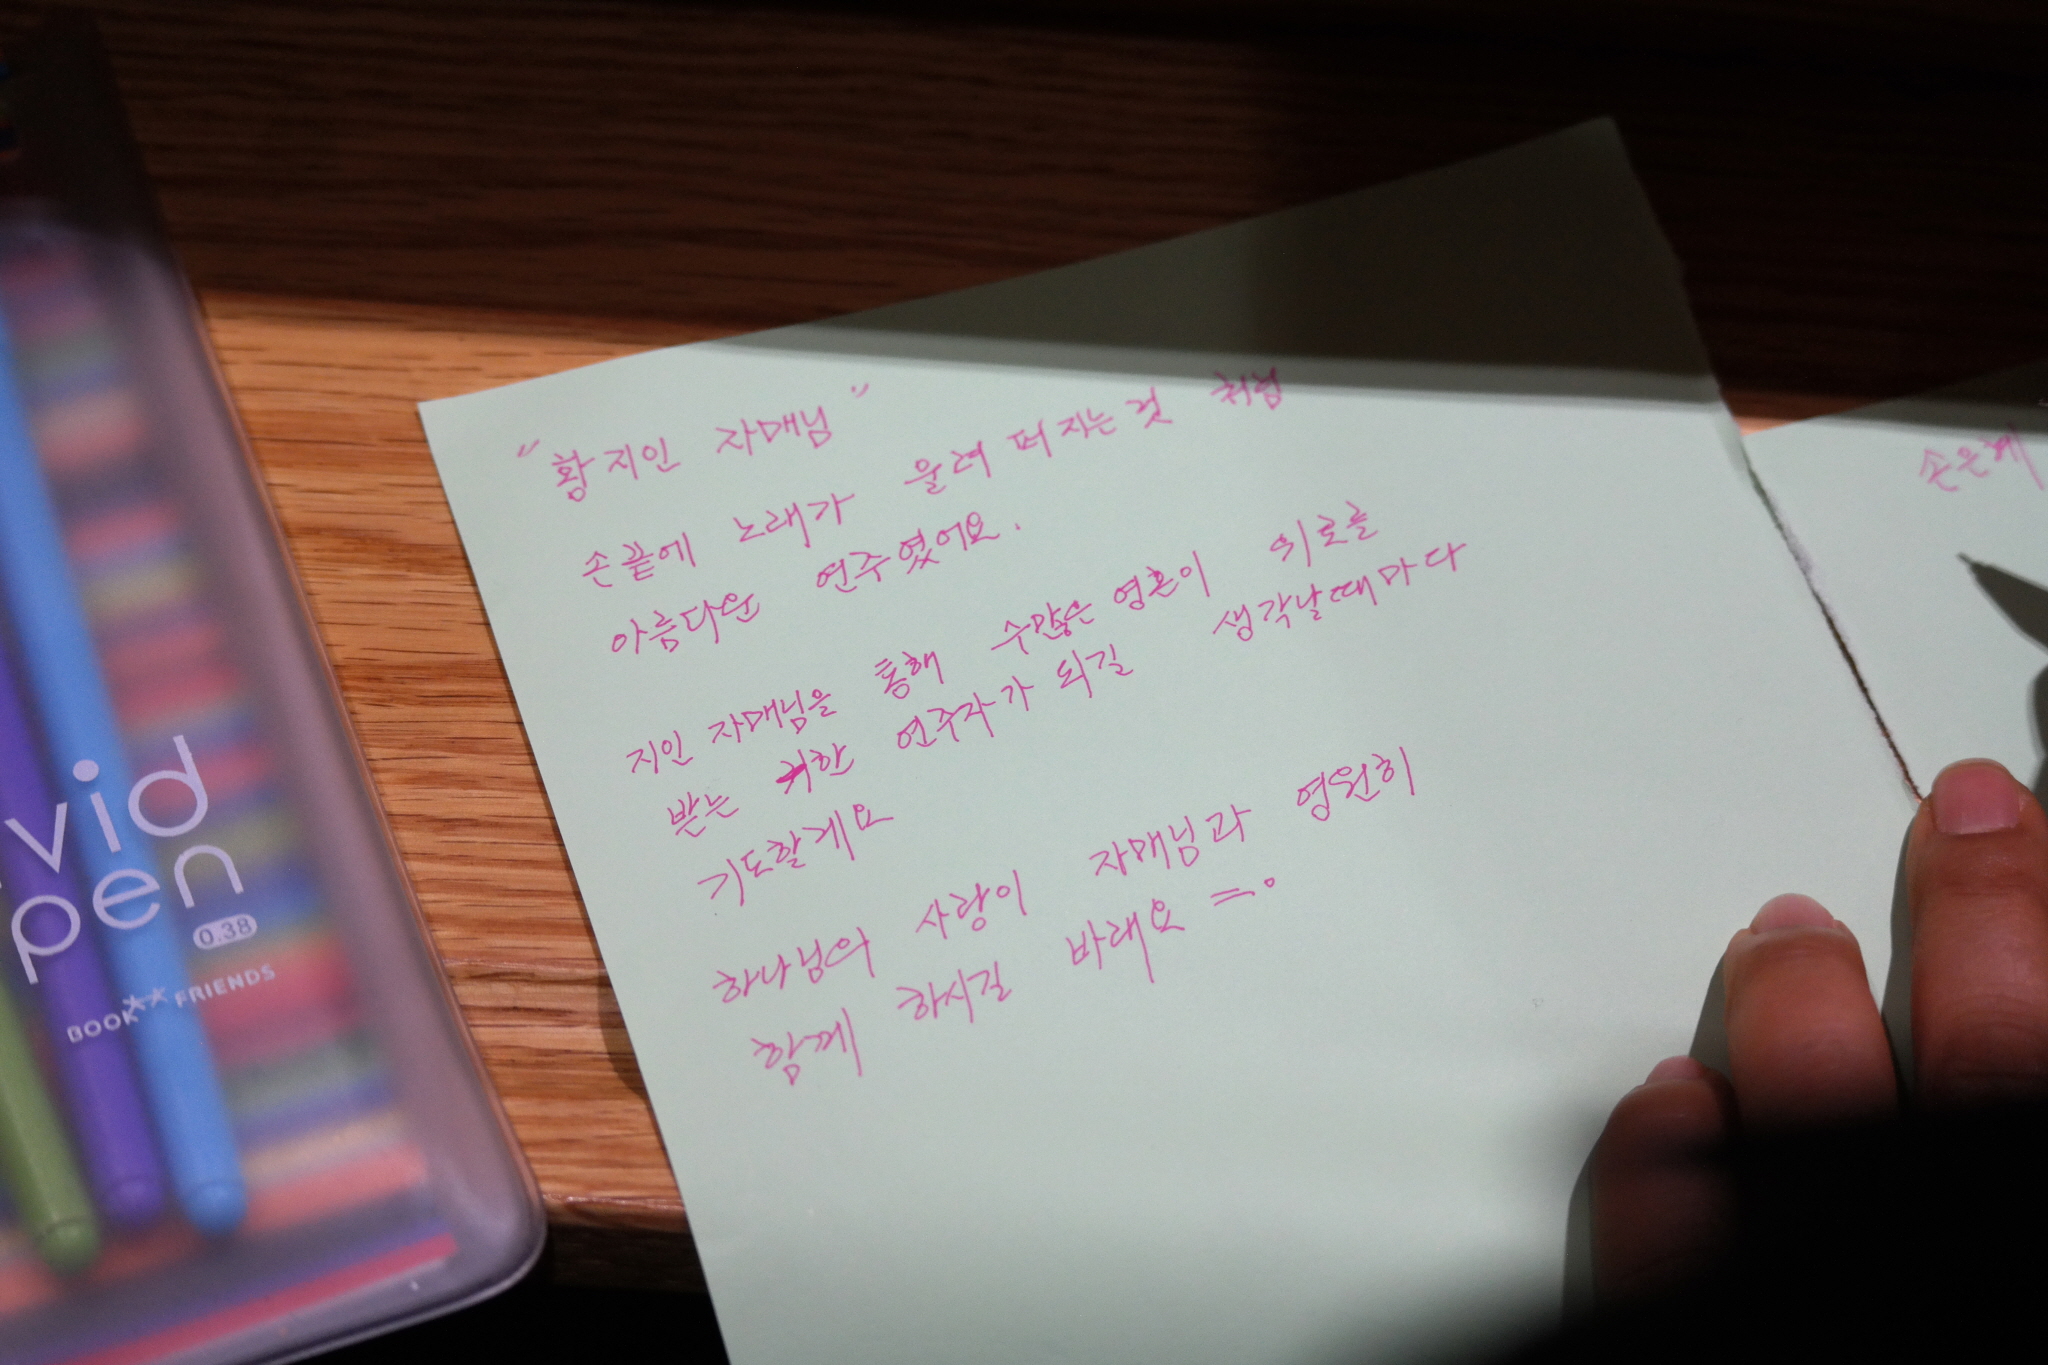 "황지인 자매님"
손끝에 노래가 울려 퍼지는것 처럼
아름다운 연주였어요.
지인 자매님을 통해 수많은 영혼이 위로를
받는 귀한 연주자가 되길 생각날때마다
기도할게요
하나님의 사랑이 자매님과 영원히
함께 하시길 바래요
손은혜
vid
pen
0.38
BOOK** FRIENDS